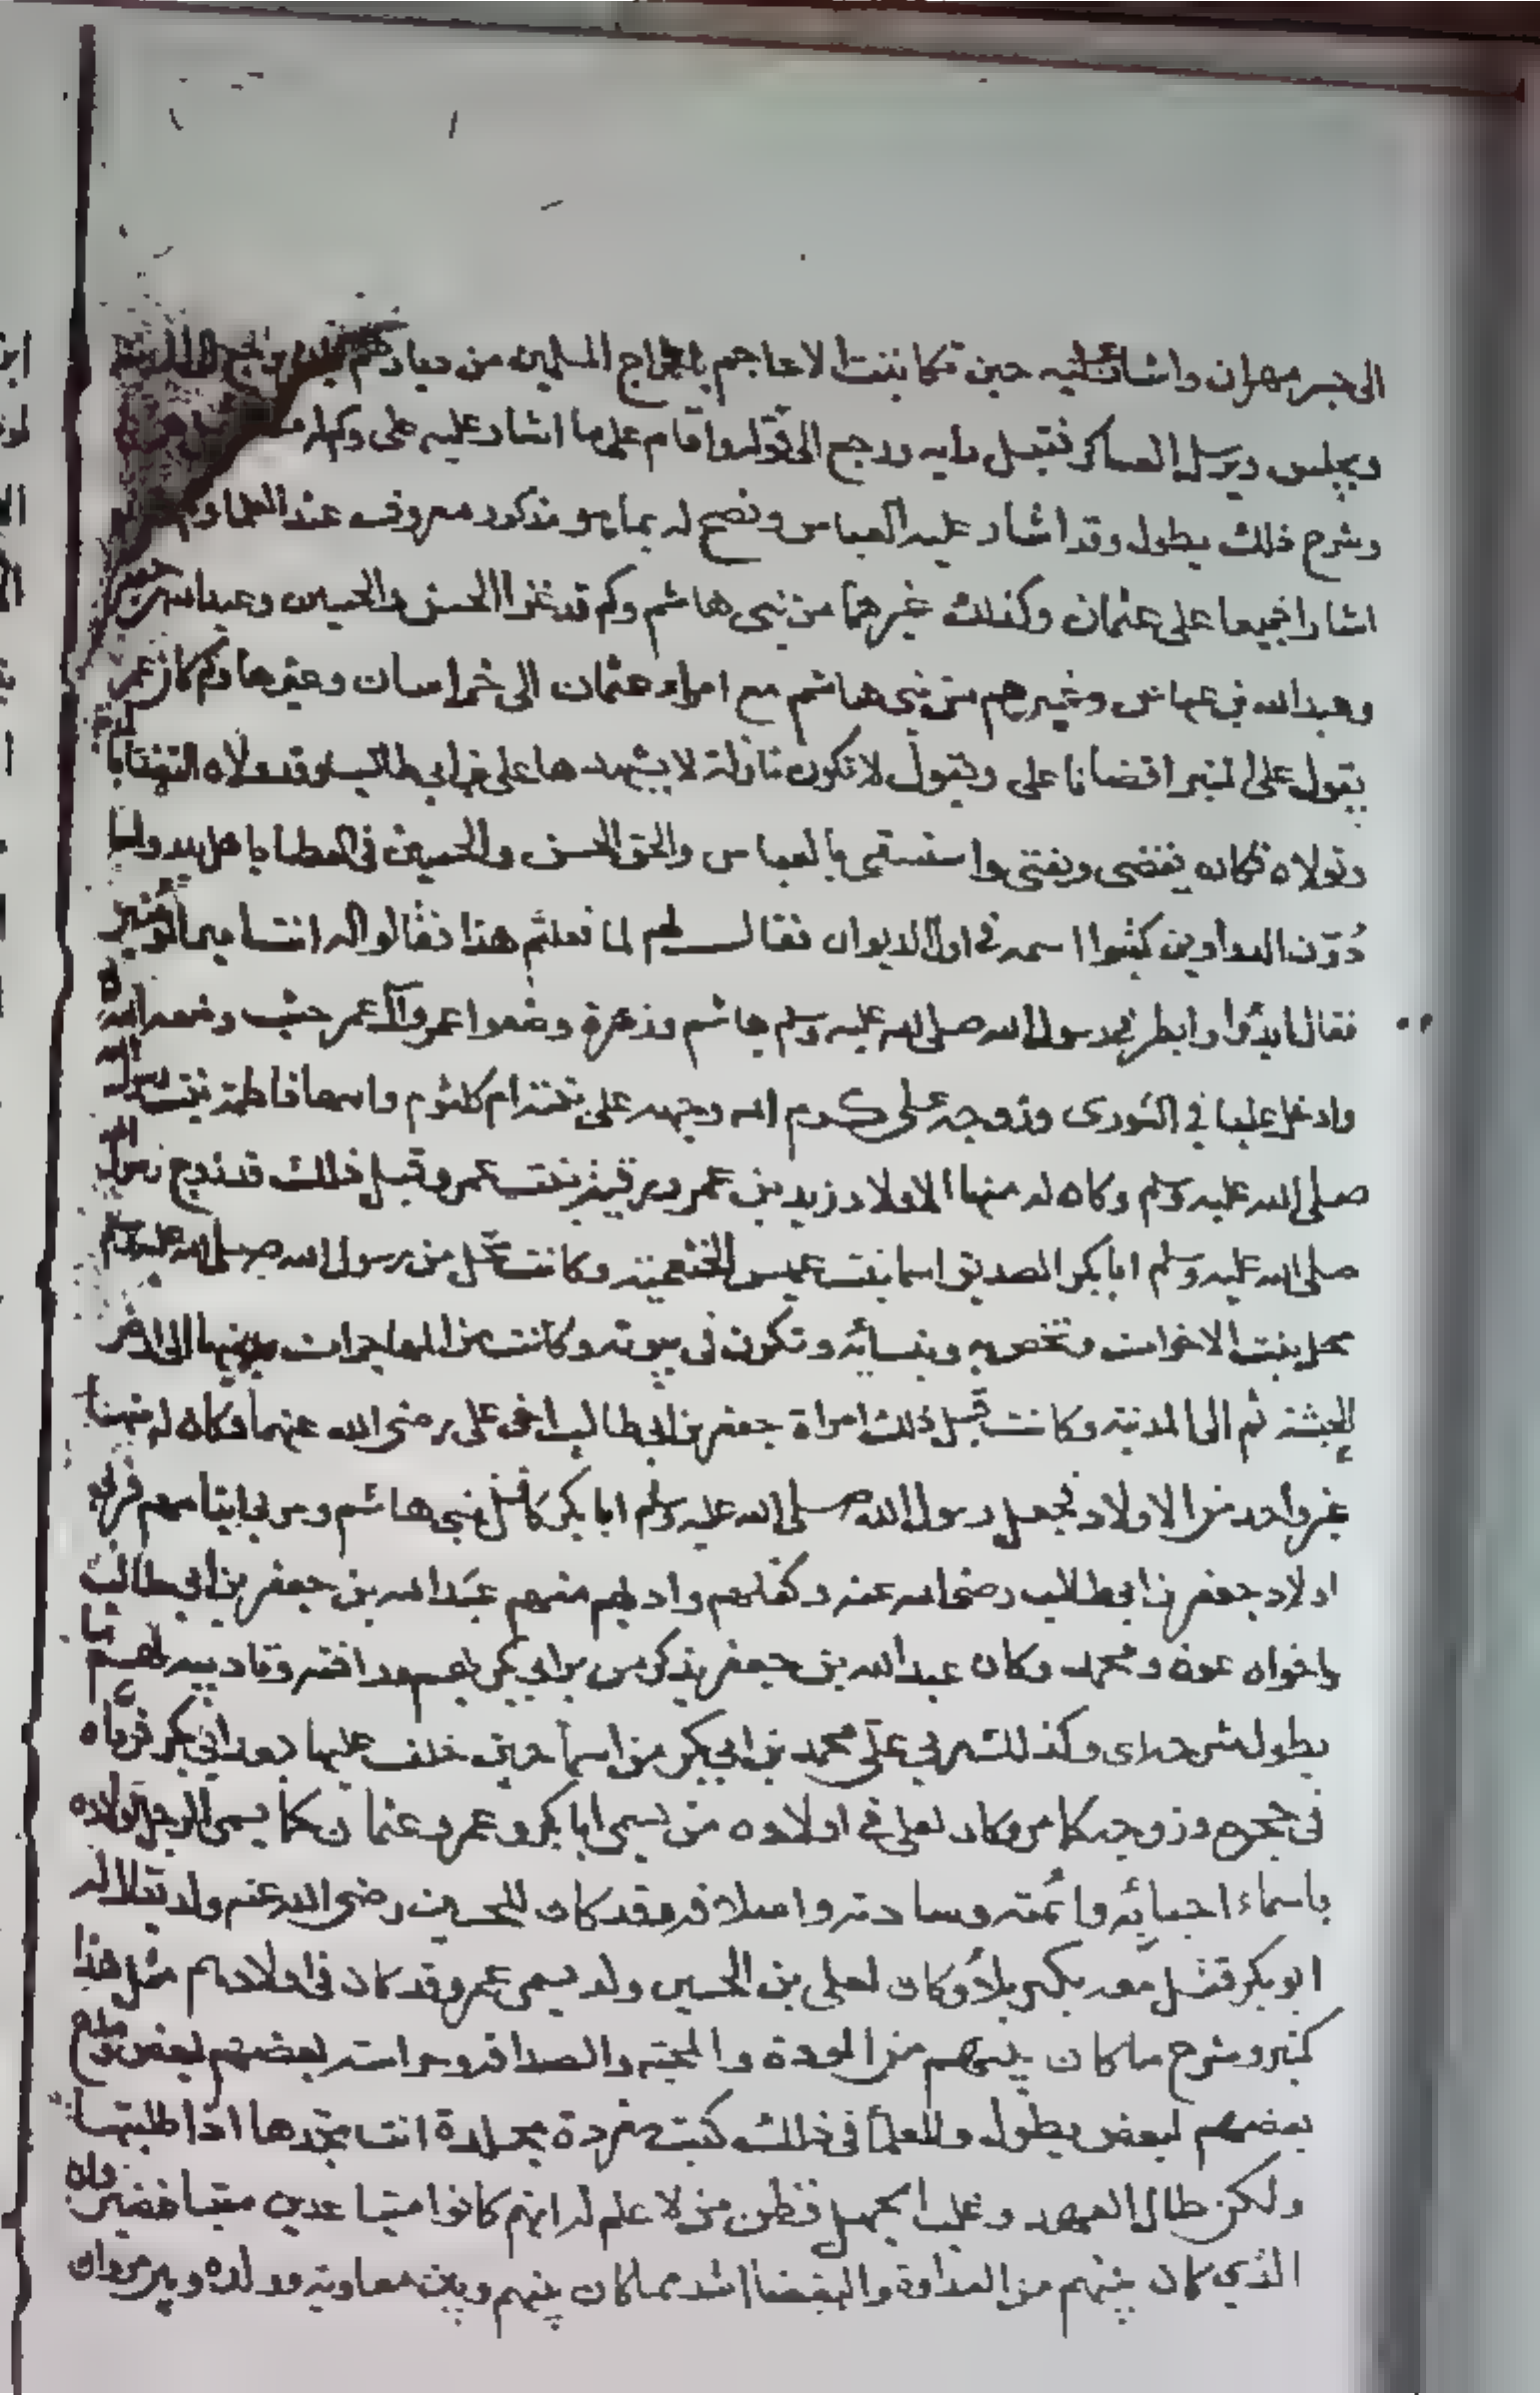 الى جسر مهران واشار عليه حين تكاتبت الاعاجم باخراج المسلمين من ديارهم
ويجلس ويرسل العساكر فقبل رأيه ورجع الى قوله واقام على ما اشار عليه على وكم له
وشرح ذلك يطول وقد اشار عليه العباس ونصح له بما هو مذكور معروف عند العلما
اشارا جميعا على عثمان وكذلك غيرهما من بني هاشم وكم قد غزا الحسن والحسين وعبدالله بن جعفر
وعبدالله بن عباس وغيرهم من بني هاشم مع امراء عثمان الى خراسان وغيرها وكم كان عمر
يقول على المنبر اقضانا على ويقول لا تكون نازلة لا يشهدها على بن ابي طالب وقد ولاه
وتولاه فكان يقضى ويفتى واستسقى بالعباس والحق الحسن والحسين في العطايا باهل بدر ولما
دوّن الدواوين كتبوا اسمه في اول الديوان فقال لهم لما فعلتم هذا فقالوا له انت امير المؤمنين
فقال ابدؤا وابطر رسول الله صلى الله عليه وسلم هاشم وزهرة وضعوا عمر وآل عمر حيث وضعه الله
وادخل عليا في الشورى وزوجه على كرم الله وجهه على بنته ام كلثوم وامها فاطمة بنت رسول الله
صلى الله عليه وسلم وكان له منها الاولاد زيد بن عمر ورقية بنت عمر وقبل ذلك قد زوج رسول الله
صلى الله عليه وسلم ابا بكر الصديق اسما بنت عميس الخثعمية وكانت تحل من رسول الله صلى الله عليه وسلم
محل بنت الاخوات وتختص به وبنسائه وتكون في بيوته وكانت من المهاجرات الى ارض
الحبشة ثم الى المدينة وكانت قبل ذلك امراة جعفر بن ابي طالب اخى على رضى الله عنهما وكان له منها
غير واحد من الاولاد فجعل رسول الله صلى الله عليه وسلم ابا بكر كافل بني هاشم ومربي ايتامهم فربى
اولاد جعفر بن ابي طالب رضى الله عنه وكفلهم وادبهم منهم عبدالله بن جعفر بن ابي طالب
واخواه عون ومحمد وكان عبدالله بن جعفر يذكر من بر ابي بكر بهم ورافته وتاديبه لهم ما
يطول شرحه وكذلك ربى على محمد بن ابي بكر من اسما حين خلف عليها بعد ابي بكر فرباه
في حجره وزوجه كما مر وكان لعلى في اولاده من يسمى ابا بكر وعمر وعثمان كما يسمى الرجل اولاده
باسماء احبائه وائمته وسادته واسلافه وقد كان للحسين رضى الله عنه ولد يقال له
ابو بكر قتل معه بكربلا وكان لعلى بن الحسين ولد يسمى عمر وقد كان في اولادهم مثل هذا
كثير وشرح ما كان بينهم من المودة والمحبة والصداقة ومواساة بعضهم لبعض ومدح
بعضهم لبعض يطول وللعلما في ذلك كتب مفردة مجلدة انت تجدها اذا طلبتها
ولكن طال العهد وغلب الجهل فظن من لا علم له انهم كانوا متباعدين متباغضين وان
الذي كان بينهم من العداوة والبغضا اشد مما كان بينهم وبين معاوية وولده وبين مروان